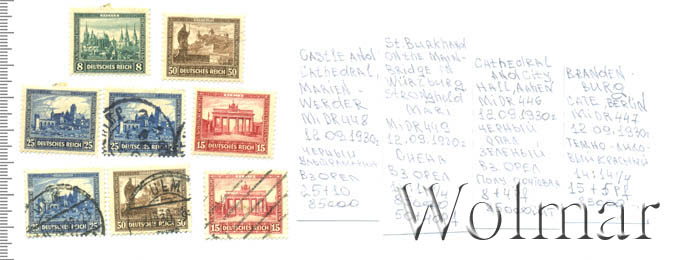 8 DEUTSCHES REICH 8
50 DEUTSCHES REICH 50
25 DEUTSCHES REICH 25
25 DEUTSCHES REICH 25
15 DEUTSCHES REICH 15
25 DEUTSCHES REICH 25
50 DEUTSCHES REICH 50
15 DEUTSCHES REICH 15
ULM
CASTLE AND
CATHEDRAL,
MARIEN-
WERDER
MiDR 448
12.09.1930г
ЧЕРНЫЙ
ВЗ ОРЕЛ
25+10
85000
St. Burkhard
ON THE MAIN-
Bridge in
WÜRZBURG
Stronghold
MARI
MiDR 449
12.09.1930г
СЦЕНА
ВЗ ОРЕЛ
CATHEDRAL
AND CITY
HALL, AAHEN
MiDR 446
12.09.1930г
ЧЕРНЫЙ
ОПАЛ.
ЗЕЛЕНЫЙ
ВЗ ОРЕЛ
8+4
BRANDEN-
BURG
GATE, BERLIN
MiDR 447
12.09.1930г
ТЕМНО-
КРАСНЫЙ
14:14 1/4
15+5 Pf
85000
Wolmar